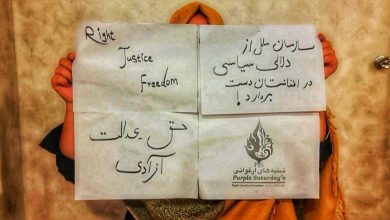 Right
Justice
Freedom
سازمان ملل از
دلالی سیاسی
در افغانستان دست
بردارد!
حق عدالت
آزادی
شنبه های ارغوانی
Purple Saturday's
Right Justice Freedom